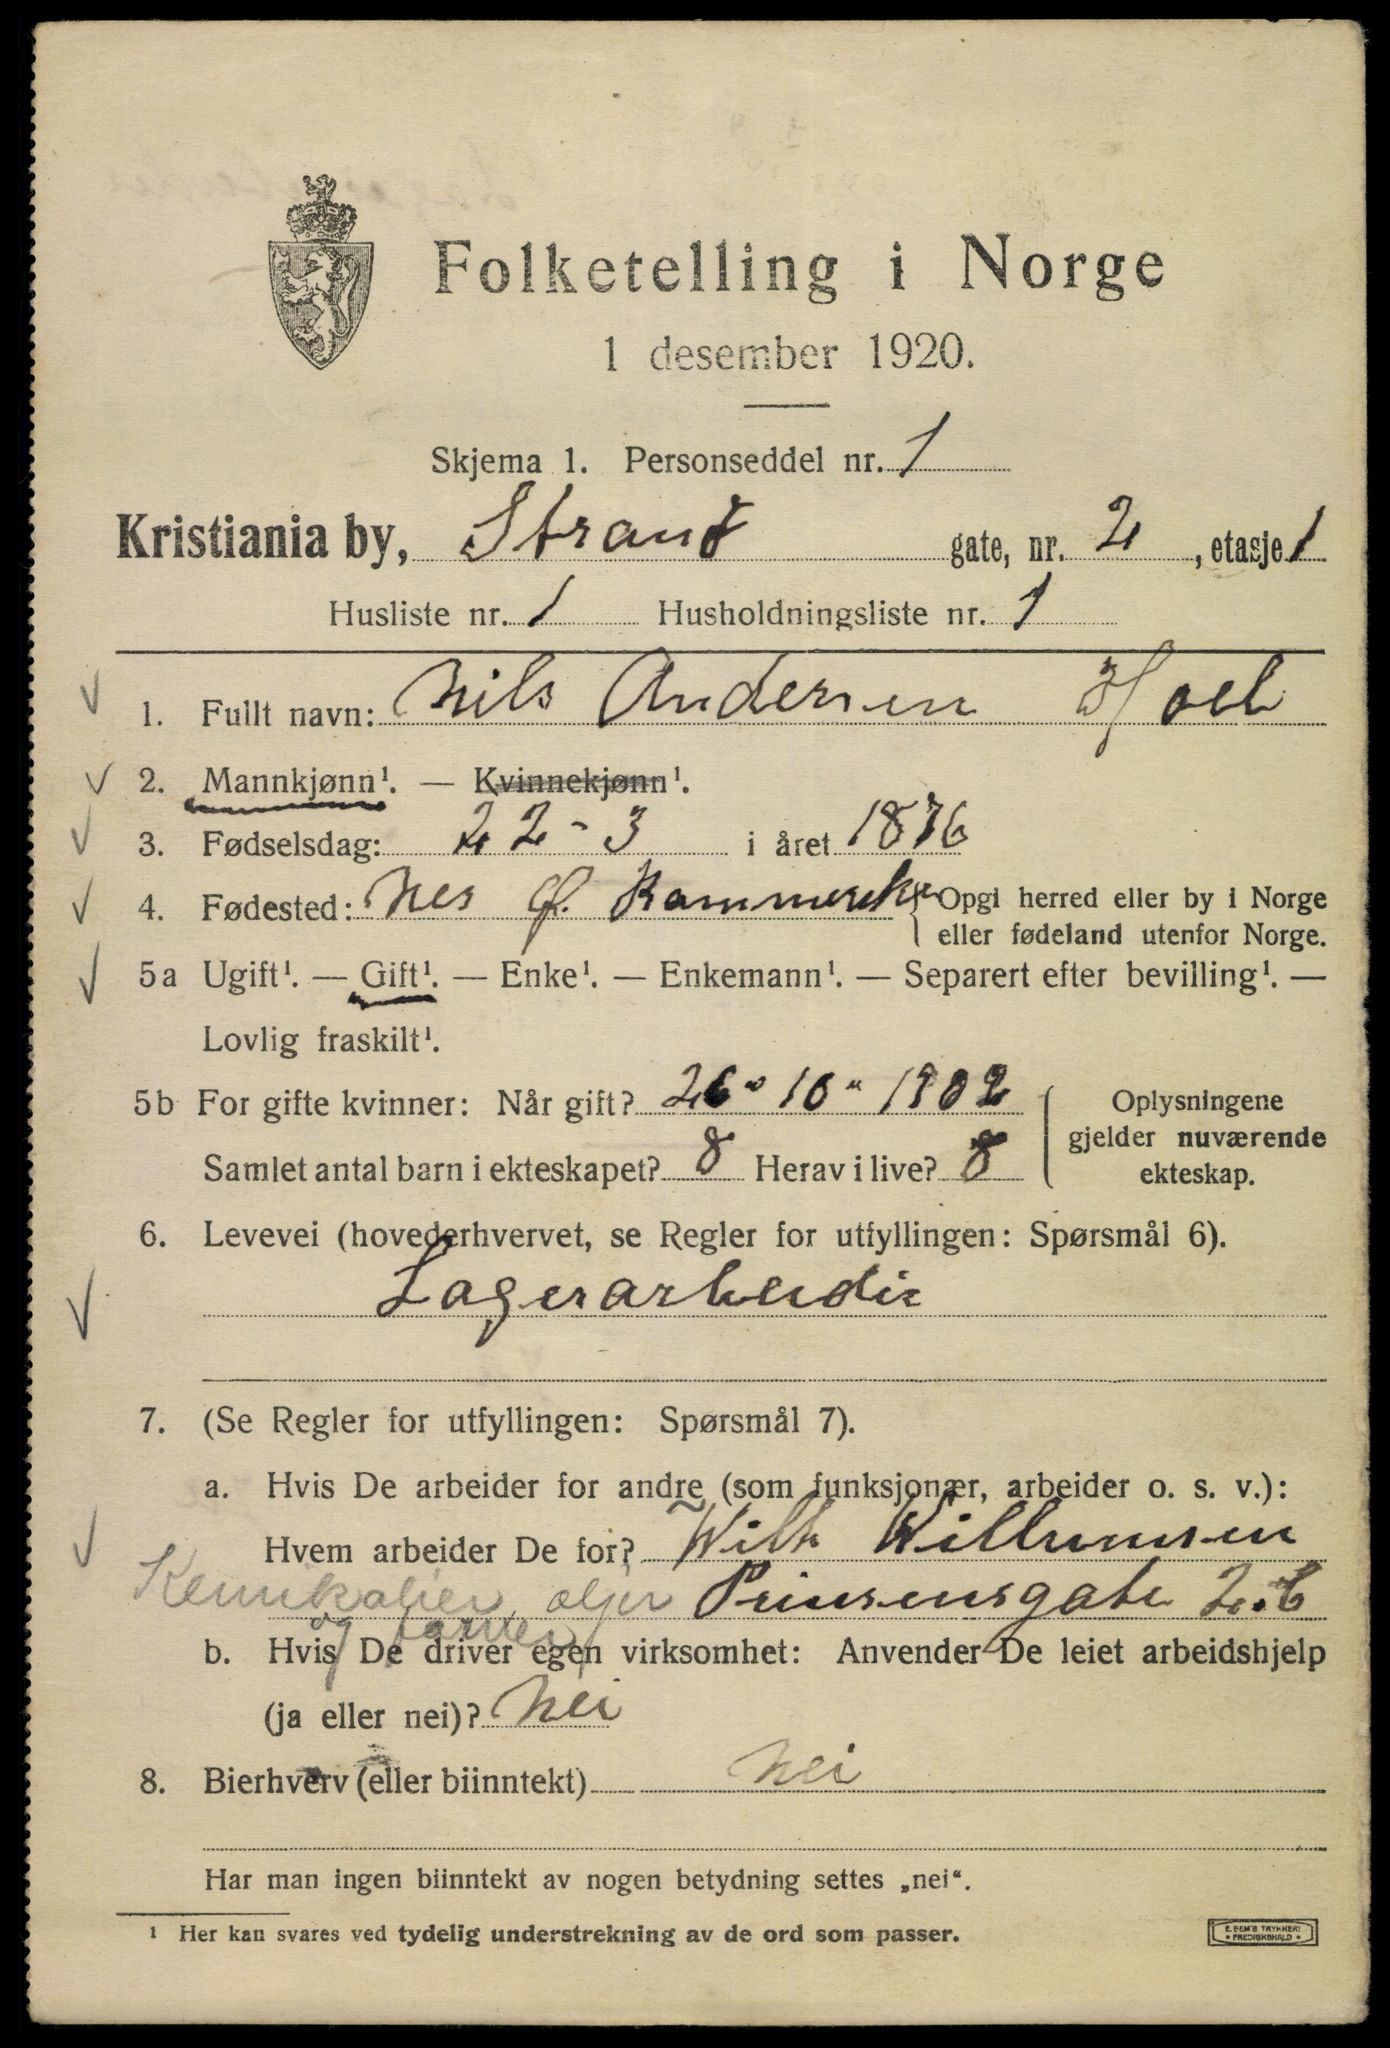 Folketelling i Norge
1 desember 1920.
Skjema 1. Personseddel nr. 1
Kristiania by, Strand gate, nr. 2, etasje 1
Husliste nr. 1 Husholdningsliste nr. 1
1. Fullt navn: Nils Andersen Hoel
2. Mannkjønn¹. — Kvinnekjønn¹.
3. Fødselsdag: 22-3 i året 1876
4. Fødested: Nes Opgi herred eller by i Norge
eller fødeland utenfor Norge.
5a Ugift¹. — Gift¹. — Enke¹. — Enkemann¹. — Separert efter bevilling¹. —
Lovlig fraskilt¹.
5b For gifte kvinner: Når gift? 26" 10" 1902 Oplysningene
gjelder nuværende
ekteskap.
Samlet antal barn i ekteskapet? 8 Herav i live? 8
6. Levevei (hovederhvervet, se Regler for utfyllingen: Spørsmål 6).
Lagerarbeider
7. (Se Regler for utfyllingen: Spørsmål 7).
a. Hvis De arbeider for andre (som funksjonær, arbeider o. s. v.):
Hvem arbeider De for? Wilh Willumsen
Kemikalier, oljer Prinsensgate 2.b
og farver
b. Hvis De driver egen virksomhet: Anvender De leiet arbeidshjelp
(ja eller nei)? Nei
8. Bierhverv (eller biinntekt) Nei
Har man ingen biinntekt av nogen betydning settes „nei“.
¹ Her kan svares ved tydelig understrekning av de ord som passer.
E. SEM'S TRYKKERI
FREDRIKSHALD